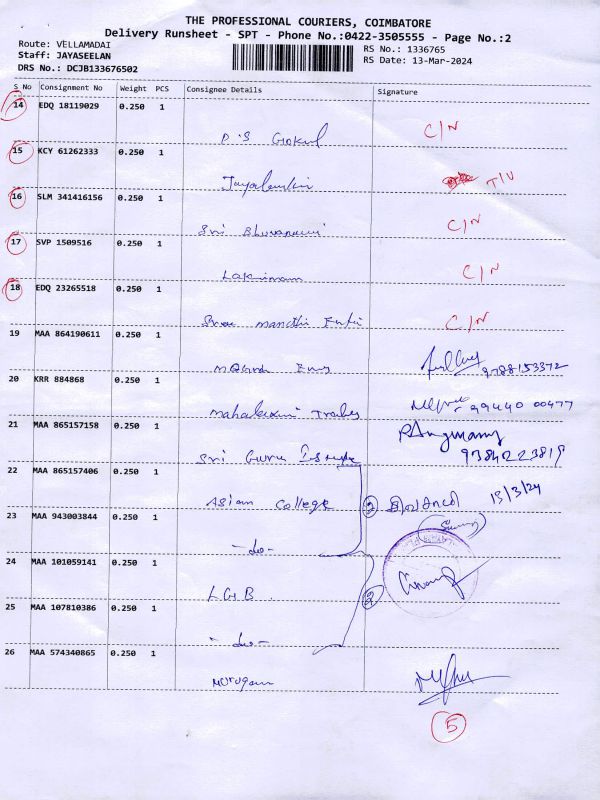 THE PROFESSIONAL COURIERS, COIMBATORE
Delivery Runsheet - SPT - Phone No.:0422-3505555 - Page No.:2
Route: VELLAMADAI
RS No.: 1336765
Staff: JAYASEELAN
RS Date: 13-Mar-2024
DRS No.: DCJB133676502
S No Consignment No Weight PCS Consignee Details Signature
14 EDQ 18119029 0.250 1
P.S Gokul C/N
15 KCY 61262333 0.250 1
T/V
16 SLM 341416156 0.250 1
Sri C/N
17 SVP 1509516 0.250 1
C/N
18 EDQ 23265518 0.250 1
C/N
19 MAA 864190611 0.250 1
9788153372
20 KRR 884868 0.250 1
Mahalaxmi Trades 99440 00477
21 MAA 865157158 0.250 1
Sri Guru 9384223819
22 MAA 865157406 0.250 1
Asian College 2 13/3/24
23 MAA 943003844 0.250 1
-do-
24 MAA 101059141 0.250 1
LGB 2
25 MAA 107810386 0.250 1
-do-
26 MAA 574340865 0.250 1
Murugan
5